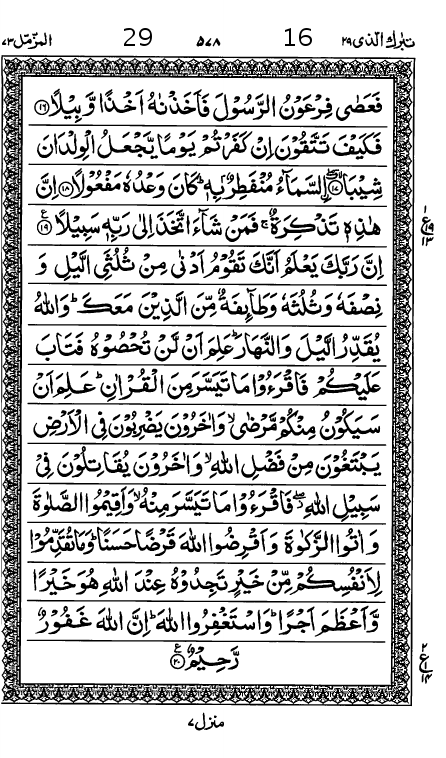 تبٰرك الذى ٢٩ 16 ٥٧٨ 29 المزمل ٧٣
فَعَصٰى فِرْعَوْنُ الرَّسُوْلَ فَاَخَذْنٰهُ اَخْذًا وَّبِيْلًا ﴿١٦﴾
فَكَيْفَ تَتَّقُوْنَ اِنْ كَفَرْتُمْ يَوْمًا يَّجْعَلُ الْوِلْدَانَ
شِيْبَا ﴿١٧﴾ اۨلسَّمَآءُ مُنْفَطِرٌۢ بِهٖ ؕ كَانَ وَعْدُهٗ مَفْعُوْلًا ﴿١٨﴾ اِنَّ
هٰذِهٖ تَذْكِرَةٌ ۚ فَمَنْ شَآءَ اتَّخَذَ اِلٰى رَبِّهٖ سَبِيْلًا ﴿١٩﴾
اِنَّ رَبَّكَ يَعْلَمُ اَنَّكَ تَقُوْمُ اَدْنٰى مِنْ ثُلُثَىِ الَّيْلِ وَ
نِصْفَهٗ وَثُلُثَهٗ وَطَآئِفَةٌ مِّنَ الَّذِيْنَ مَعَكَ ؕ وَاللّٰهُ
يُقَدِّرُ الَّيْلَ وَالنَّهَارَ ؕ عَلِمَ اَنْ لَّنْ تُحْصُوْهُ فَتَابَ
عَلَيْكُمْ فَاقْرَءُوْا مَا تَيَسَّرَ مِنَ الْقُرْاٰنِ ؕ عَلِمَ اَنْ
سَيَكُوْنُ مِنْكُمْ مَّرْضٰى ۙ وَاٰخَرُوْنَ يَضْرِبُوْنَ فِى الْاَرْضِ
يَبْتَغُوْنَ مِنْ فَضْلِ اللّٰهِ ۙ وَاٰخَرُوْنَ يُقَاتِلُوْنَ فِىْ
سَبِيْلِ اللّٰهِ ۖ فَاقْرَءُوْا مَا تَيَسَّرَ مِنْهُ ۙ وَاَقِيْمُوا الصَّلٰوةَ
وَاٰتُوا الزَّكٰوةَ وَاَقْرِضُوا اللّٰهَ قَرْضًا حَسَنًا ؕ وَمَا تُقَدِّمُوْا
لِاَنْفُسِكُمْ مِّنْ خَيْرٍ تَجِدُوْهُ عِنْدَ اللّٰهِ هُوَ خَيْرًا
وَّاَعْظَمَ اَجْرًا ؕ وَاسْتَغْفِرُوا اللّٰهَ ؕ اِنَّ اللّٰهَ غَفُوْرٌ
رَّحِيْمٌ ﴿٢٠﴾
ع ١ ١٩ ١٣
ع ٢ ١ ١٤
منزل ٧